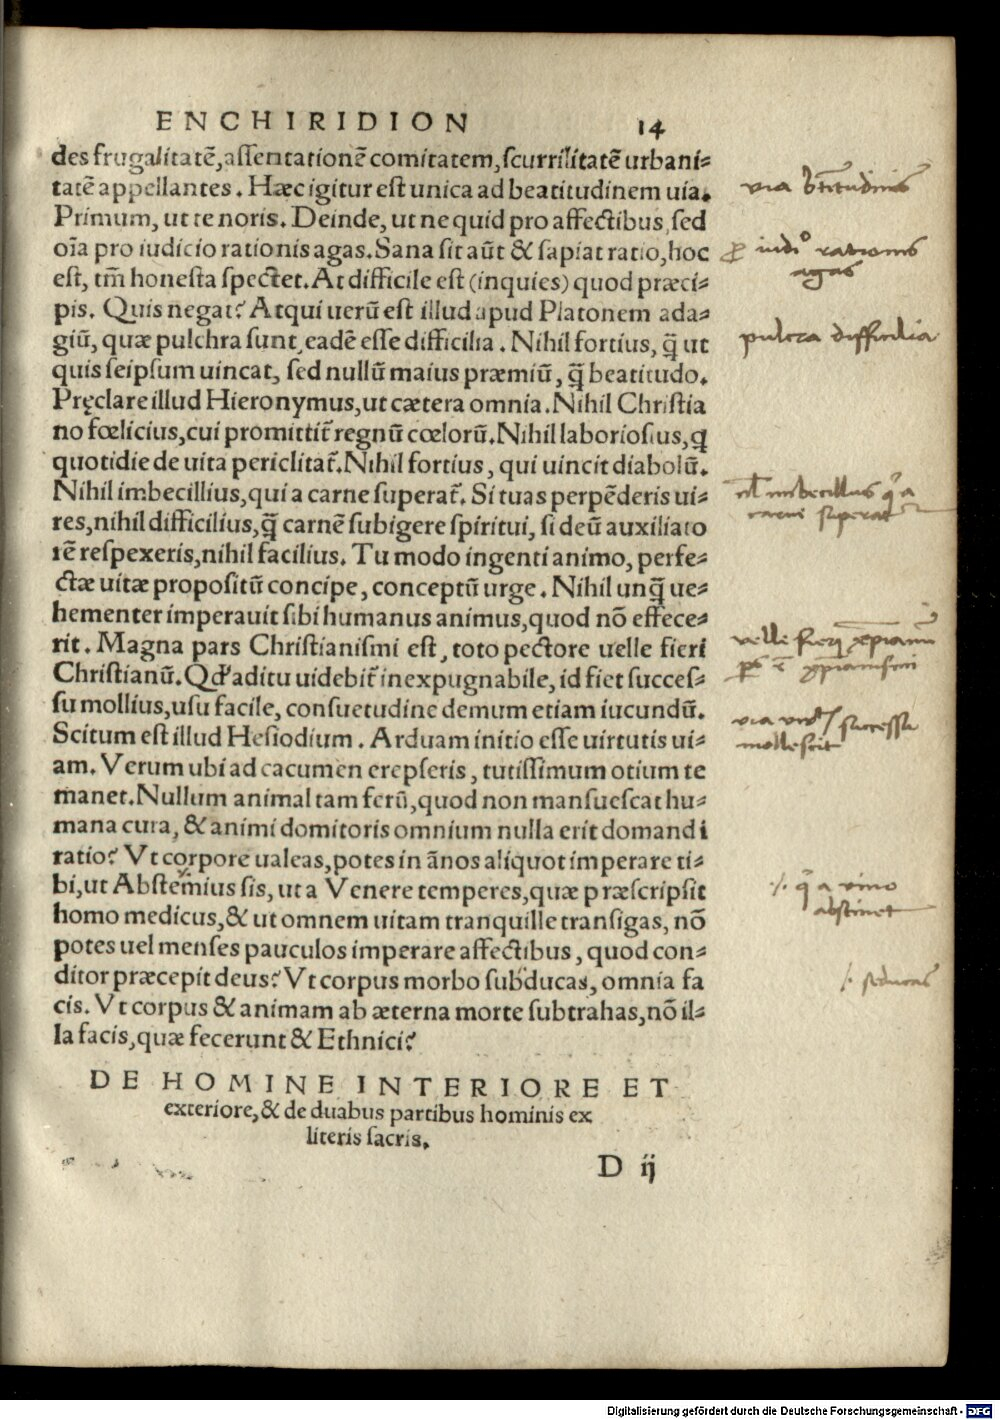 ENCHIRIDION 14
des frugalitatē, assentationē comitatem, scurrilitatē urbani=
tatē appellantes. Hæc igitur est unica ad beatitudinem uia.
Primum, ut te noris. Deinde, ut ne quid pro affectibus, sed
oīa pro iudicio rationis agas. Sana sit aūt & sapiat ratio, hoc
est, tm̄ honesta spectet. At difficile est (inquies) quod præci=
pis. Quis negat? Atqui uerū est illud apud Platonem ada=
giū, quæ pulchra sunt, eadē esse difficilia. Nihil fortius, q̄ ut
quis seipsum uincat, sed nullū maius præmiū, q̄ beatitudo.
Pręclare illud Hieronymus, ut cætera omnia. Nihil Christia
no fœlicius, cui promittit᷑ regnū cœlorū. Nihil laboriosius, q
quotidie de uita periclitat᷑. Nihil fortius, qui uincit diabolū.
Nihil imbecillius, qui a carne superat᷑. Si tuas perpēderis ui=
res, nihil difficilius, q̄ carnē subigere spiritui, si deū auxiliato
rē respexeris, nihil facilius. Tu modo ingenti animo, perfe=
ctæ uitæ propositū concipe, conceptū urge. Nihil unq̄ ue=
hementer imperauit sibi humanus animus, quod nō effece=
rit. Magna pars Christianismi est, toto pectore uelle fieri
Christianū. Qd' aditu uidebit᷑ inexpugnabile, id fiet succes=
su mollius, usu facile, consuetudine demum etiam iucundū.
Scitum est illud Hesiodium. Arduam initio esse uirtutis ui=
am. Verum ubi ad cacumen erepseris, tutissimum otium te
manet. Nullum animal tam ferū, quod non mansuescat hu=
mana cura, & animi domitoris omnium nulla erit domandi
ratio? Vt corpore ualeas, potes in ānos aliquot imperare ti=
bi, ut Abstemius sis, ut a Venere temperes, quæ præscripsit
homo medicus, & ut omnem uitam tranquille transigas, nō
potes uel menses pauculos imperare affectibus, quod con=
ditor præcepit deus? Vt corpus morbo subducas, omnia fa
cis. Vt corpus & animam ab æterna morte subtrahas, nō il=
la facis, quæ fecerunt & Ethnici?
DE HOMINE INTERIORE ET
exteriore, & de duabus partibus hominis ex
literis sacris.
D ij
via btitudinis
iudo rationis
agas
pulcra difficilia
imbecillius q a
carne superat
velle fieri xpianū
via successu
mollescit
q a vino
abstinet
seducas
Digitalisierung gefördert durch die Deutsche Forschungsgemeinschaft - DFG